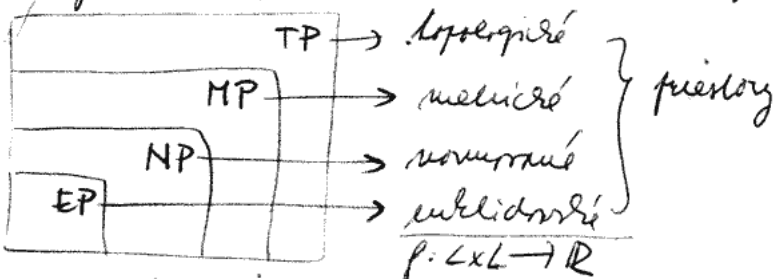 TP → topologické
MP → metrické
NP → normované
EP → euklidovské
priestory
ρ: L×L → ℝ